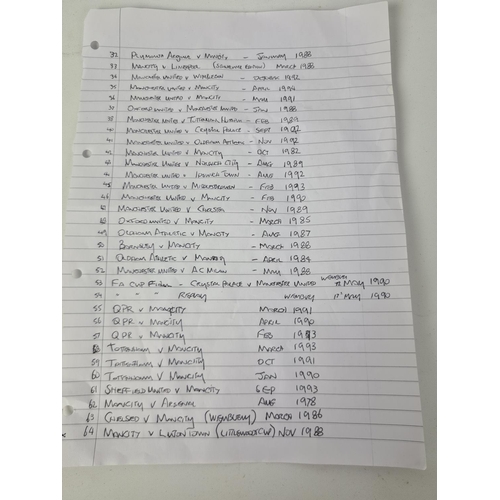 32 PLYMOUTH ARGYLE V MANCITY - JANUARY 1988
33 MANCITY V LIVERPOOL MARCH 1988
34 MANCHESTER UNITED V WIMBLEDON - 1992
35 MANCHESTER UNITED V MANCITY - APRIL
36 MANCHESTER UNITED V MANCITY - MAY 1991
OXFORD UNITED V MANCHESTER UNITED - JAN 1988
38 MANCHESTER UNITED V TOTTENHAM - FEB 1989
MANCHESTER UNITED V CRYSTAL PALACE - SEPT
MANCHESTER UNITED V OLDHAM ATHLETIC - NOV 1992
41 MANCHESTER UNITED V MANCITY - OCT 1982
MANCHESTER UNITED V NORWICH CITY - AUG 1989
MANCHESTER UNITED V IPSWICH TOWN - AUG 1992
MANCHESTER UNITED V MIDDLESBROUGH - FEB 1993
MANCHESTER UNITED V MANCITY - FEB 1990
MANCHESTER UNITED V CHELSEA - NOV 1989
OXFORD UNITED V MANCITY - MARCH 1985
49 OLDHAM ATHLETIC V MANCITY - AUG 1987
50 BARNSLEY V MANCITY - MARCH 1988
51 OLDHAM ATHLETIC V MANCITY - APRIL 1984
52 MANCHESTER UNITED V AC MILAN - MAY 1988
53 FA CUP FINAL - CRYSTAL PALACE V MANCHESTER UNITED WEMBLEY 12 MAY 1990
54 " " " REPLAY WEMBLEY 17 MAY 1990
55 QPR V MANCITY MARCH 1991
56 QPR V MANCITY APRIL 1990
57 QPR V MANCITY FEB 1993
58 TOTTENHAM V MANCITY MARCH 1993
59 TOTTENHAM V MANCITY OCT 1991
60 TOTTENHAM V MANCITY JAN 1990
61 SHEFFIELD UNITED V MANCITY SEP 1993
62 MANCITY V ARSENAL AUG 1978
63 CHELSEA V MANCITY (WEMBLEY) MARCH 1986
64 MANCITY V LUTON TOWN (LITTLEWOODS CUP) NOV 1988